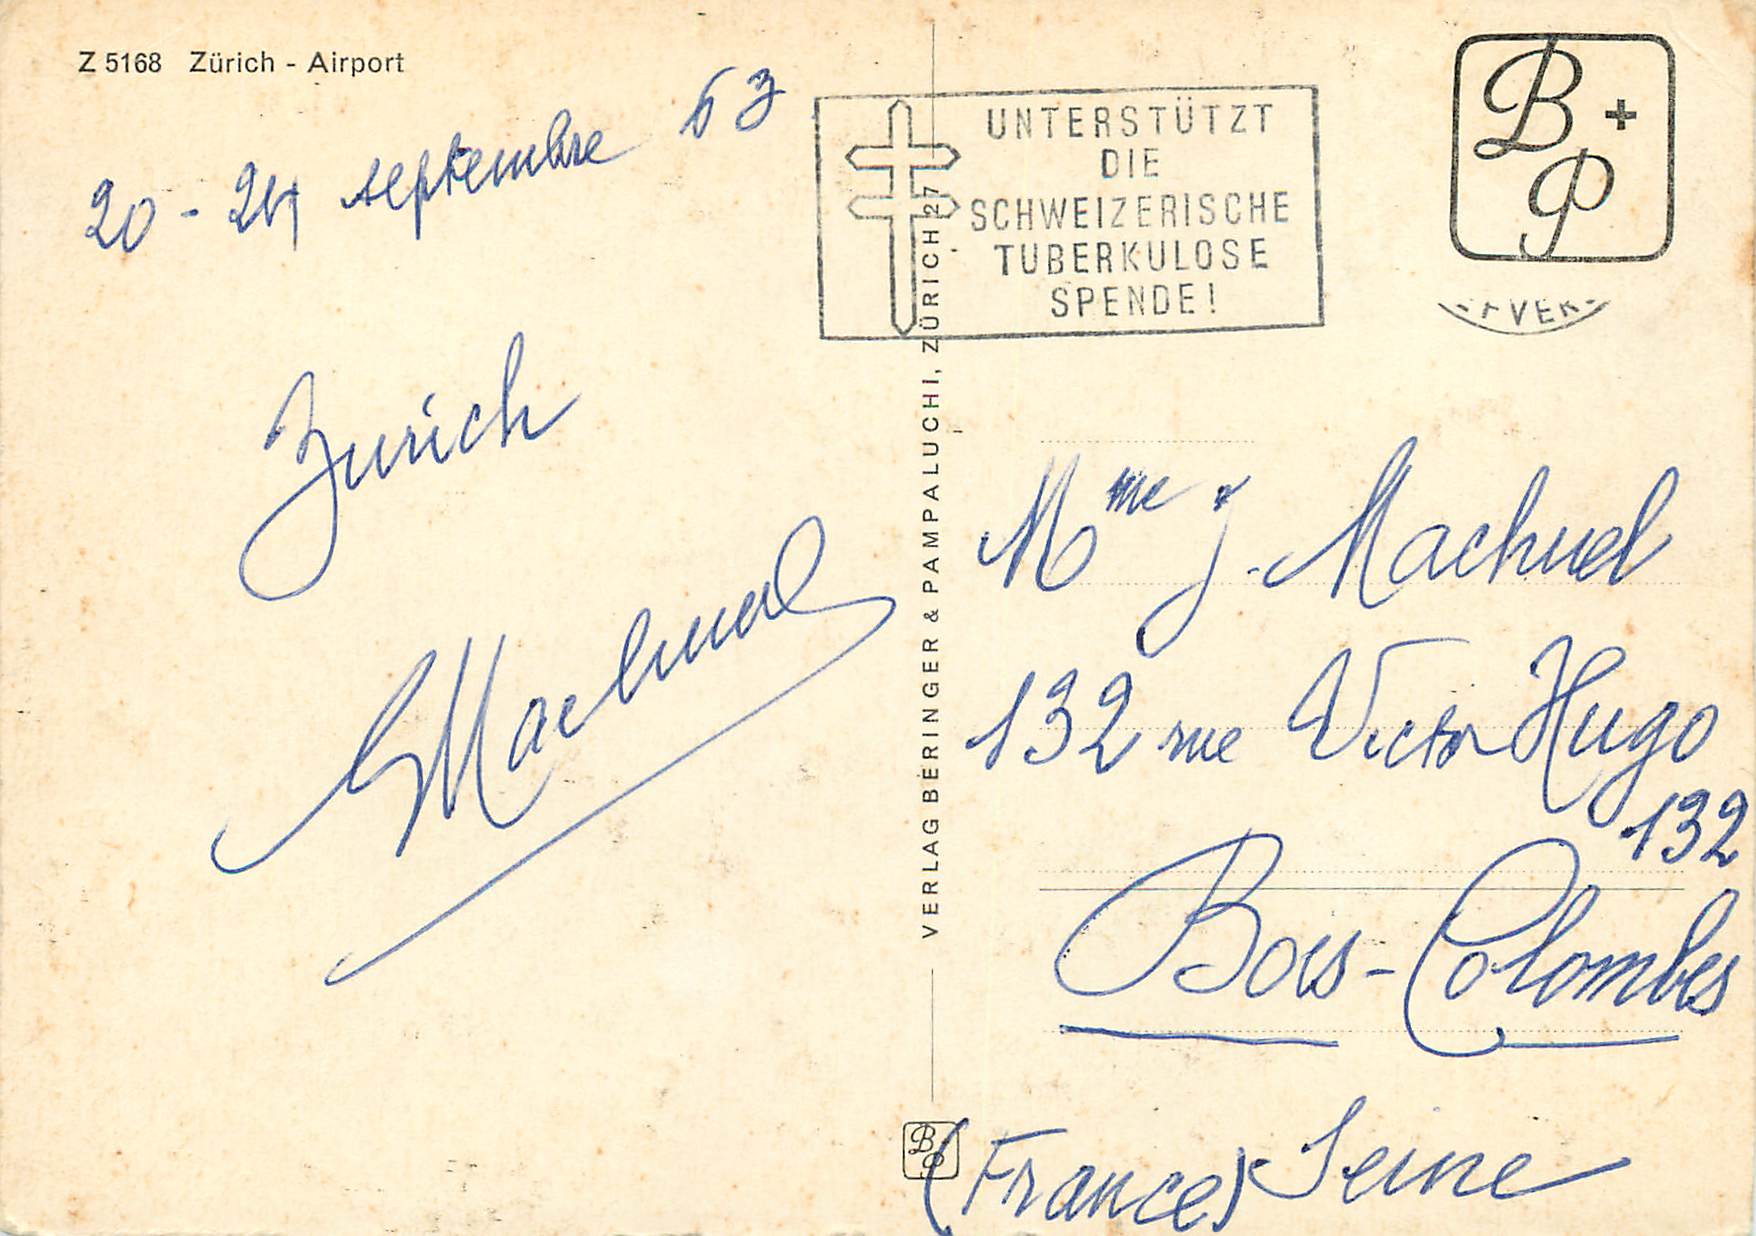 Z 5168 Zürich - Airport
20 - 24 septembre 63
Zurich
Machuel
UNTERSTÜTZT
DIE
SCHWEIZERISCHE
TUBERKULOSE
SPENDE!
B + P
VERLAG BERINGER & PAMPALUCHI, ZÜRICH 27
Mme J. Machuel
132 rue Victor Hugo
132
Bois-Colombes
(France) Seine
B P